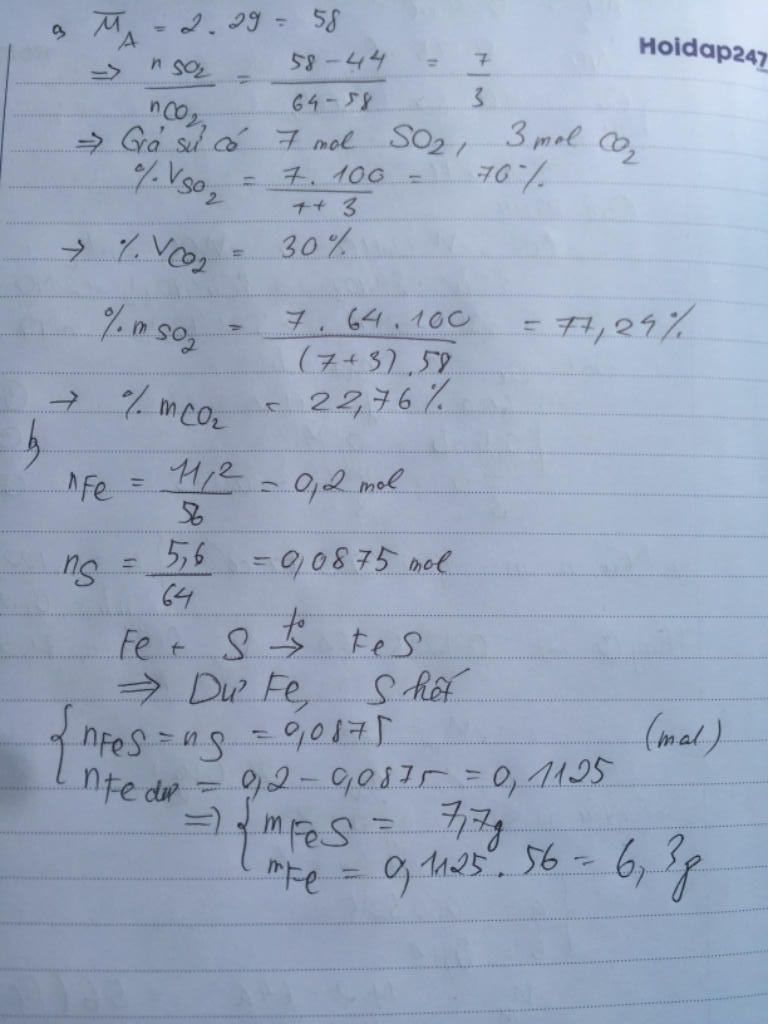 a, M̅_A = 2 . 29 = 58
Hoidap247
=> n SO₂ / nCO₂ = 58-44 / 64-58 = 7 / 3
=> Giả sử có 7 mol SO₂, 3 mol CO₂
%V_SO₂ = 7 . 100 / 7+3 = 70%
-> %V_CO₂ = 30%
%m SO₂ = 7 . 64 . 100 / (7+3) . 58 = 77,24%
-> %m CO₂ = 22,76%
b,
n Fe = 11,2 / 56 = 0,2 mol
n S = 5,6 / 64 = 0,0875 mol
Fe + S t° → FeS
=> Dư Fe, S hết
{ n FeS = n S = 0,0875 (mol)
n Fe dư = 0,2 - 0,0875 = 0,1125
=> { m FeS = 7,7g
m Fe = 0,1125 . 56 = 6,3g